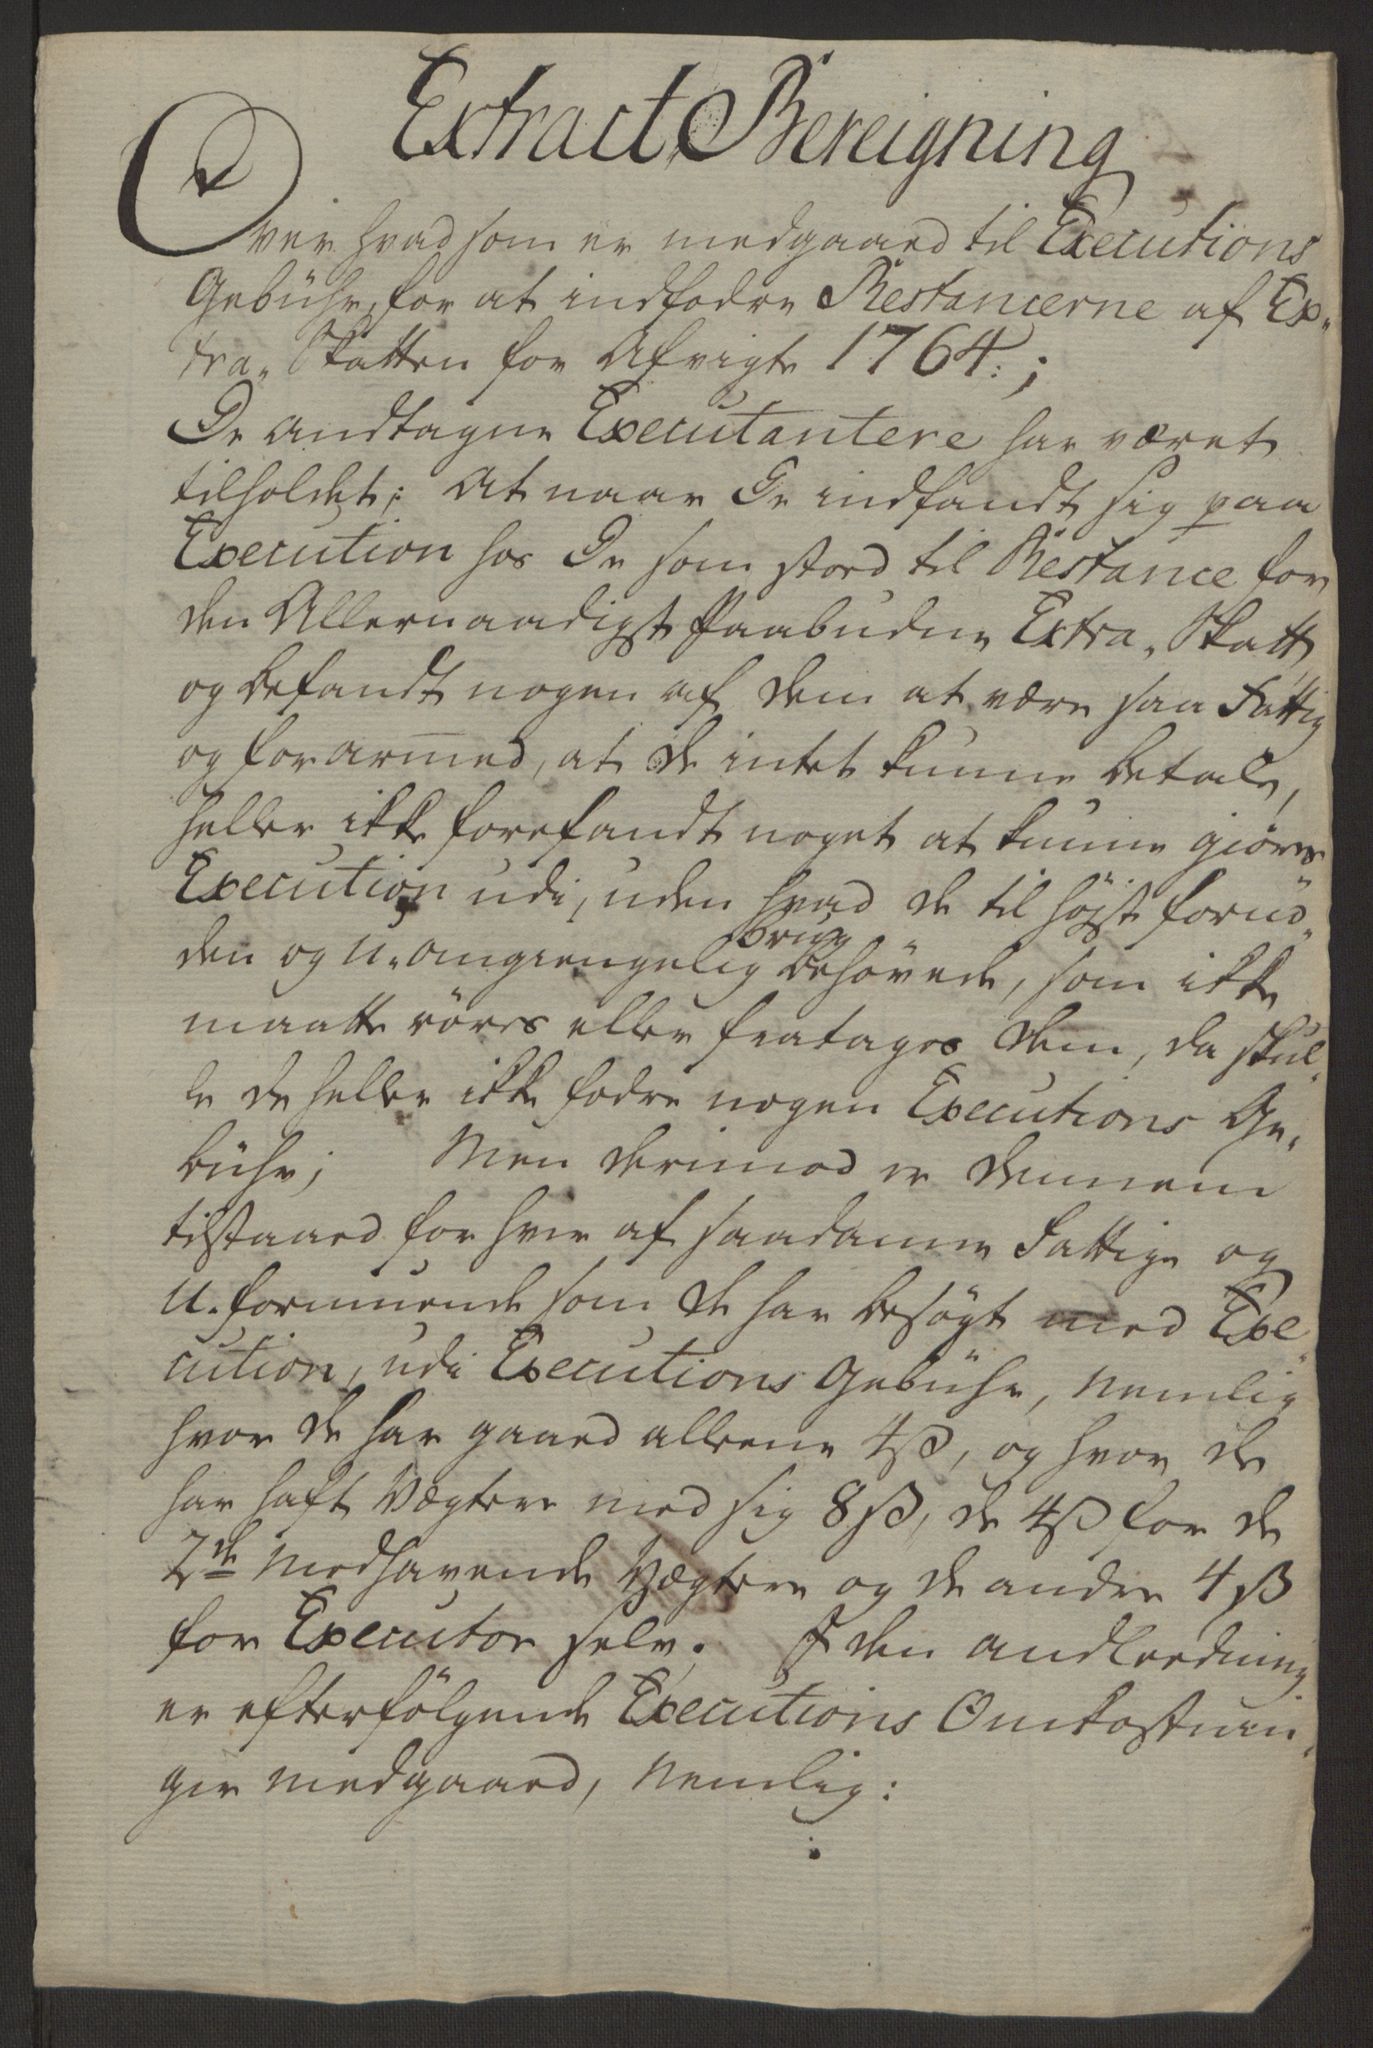 Extract Bereigning
Over hvad som er medgaaed til Executions
Gebühr, for at indfodre Restancerne af Ex-
tra-Skatten for Afvigte 1764:;
De andtagne Executantere har været
tilholdet; At naar De indfandt sig paa
Execution hos De som stoed til Restance for
den Allernaadigst Paabudne Extra-Skatt
og befandt nogen af dem at være saa Fattig
og forarmed, at de intet kunne betale,
heller ikke forefandt noget at kunne giöres
Execution udi, uden hvad de til højst fornö-
den og U-omgiengelig brug behövede, som ikke
maatte röres eller fratages dem, da skul-
le de heller ikke fodre nogen Executions Ge-
bühr; Men derimod er dennem
tilstaaed for hver af saadanne Fattige og
U-formuende som de har besögt med Exe-
cution, udi Executions Gebühr, Nemlig
hvor de har gaaed alleene 4ß, og hvor de
har haft Vægtere med sig 8ß, de 4ß for de
2de Medhavende Vægtere og de andre 4ß
for Executor selv. I den andleedning
er efterfölgende Executions Omkostnin-
ger medgaaed, Nemlig: